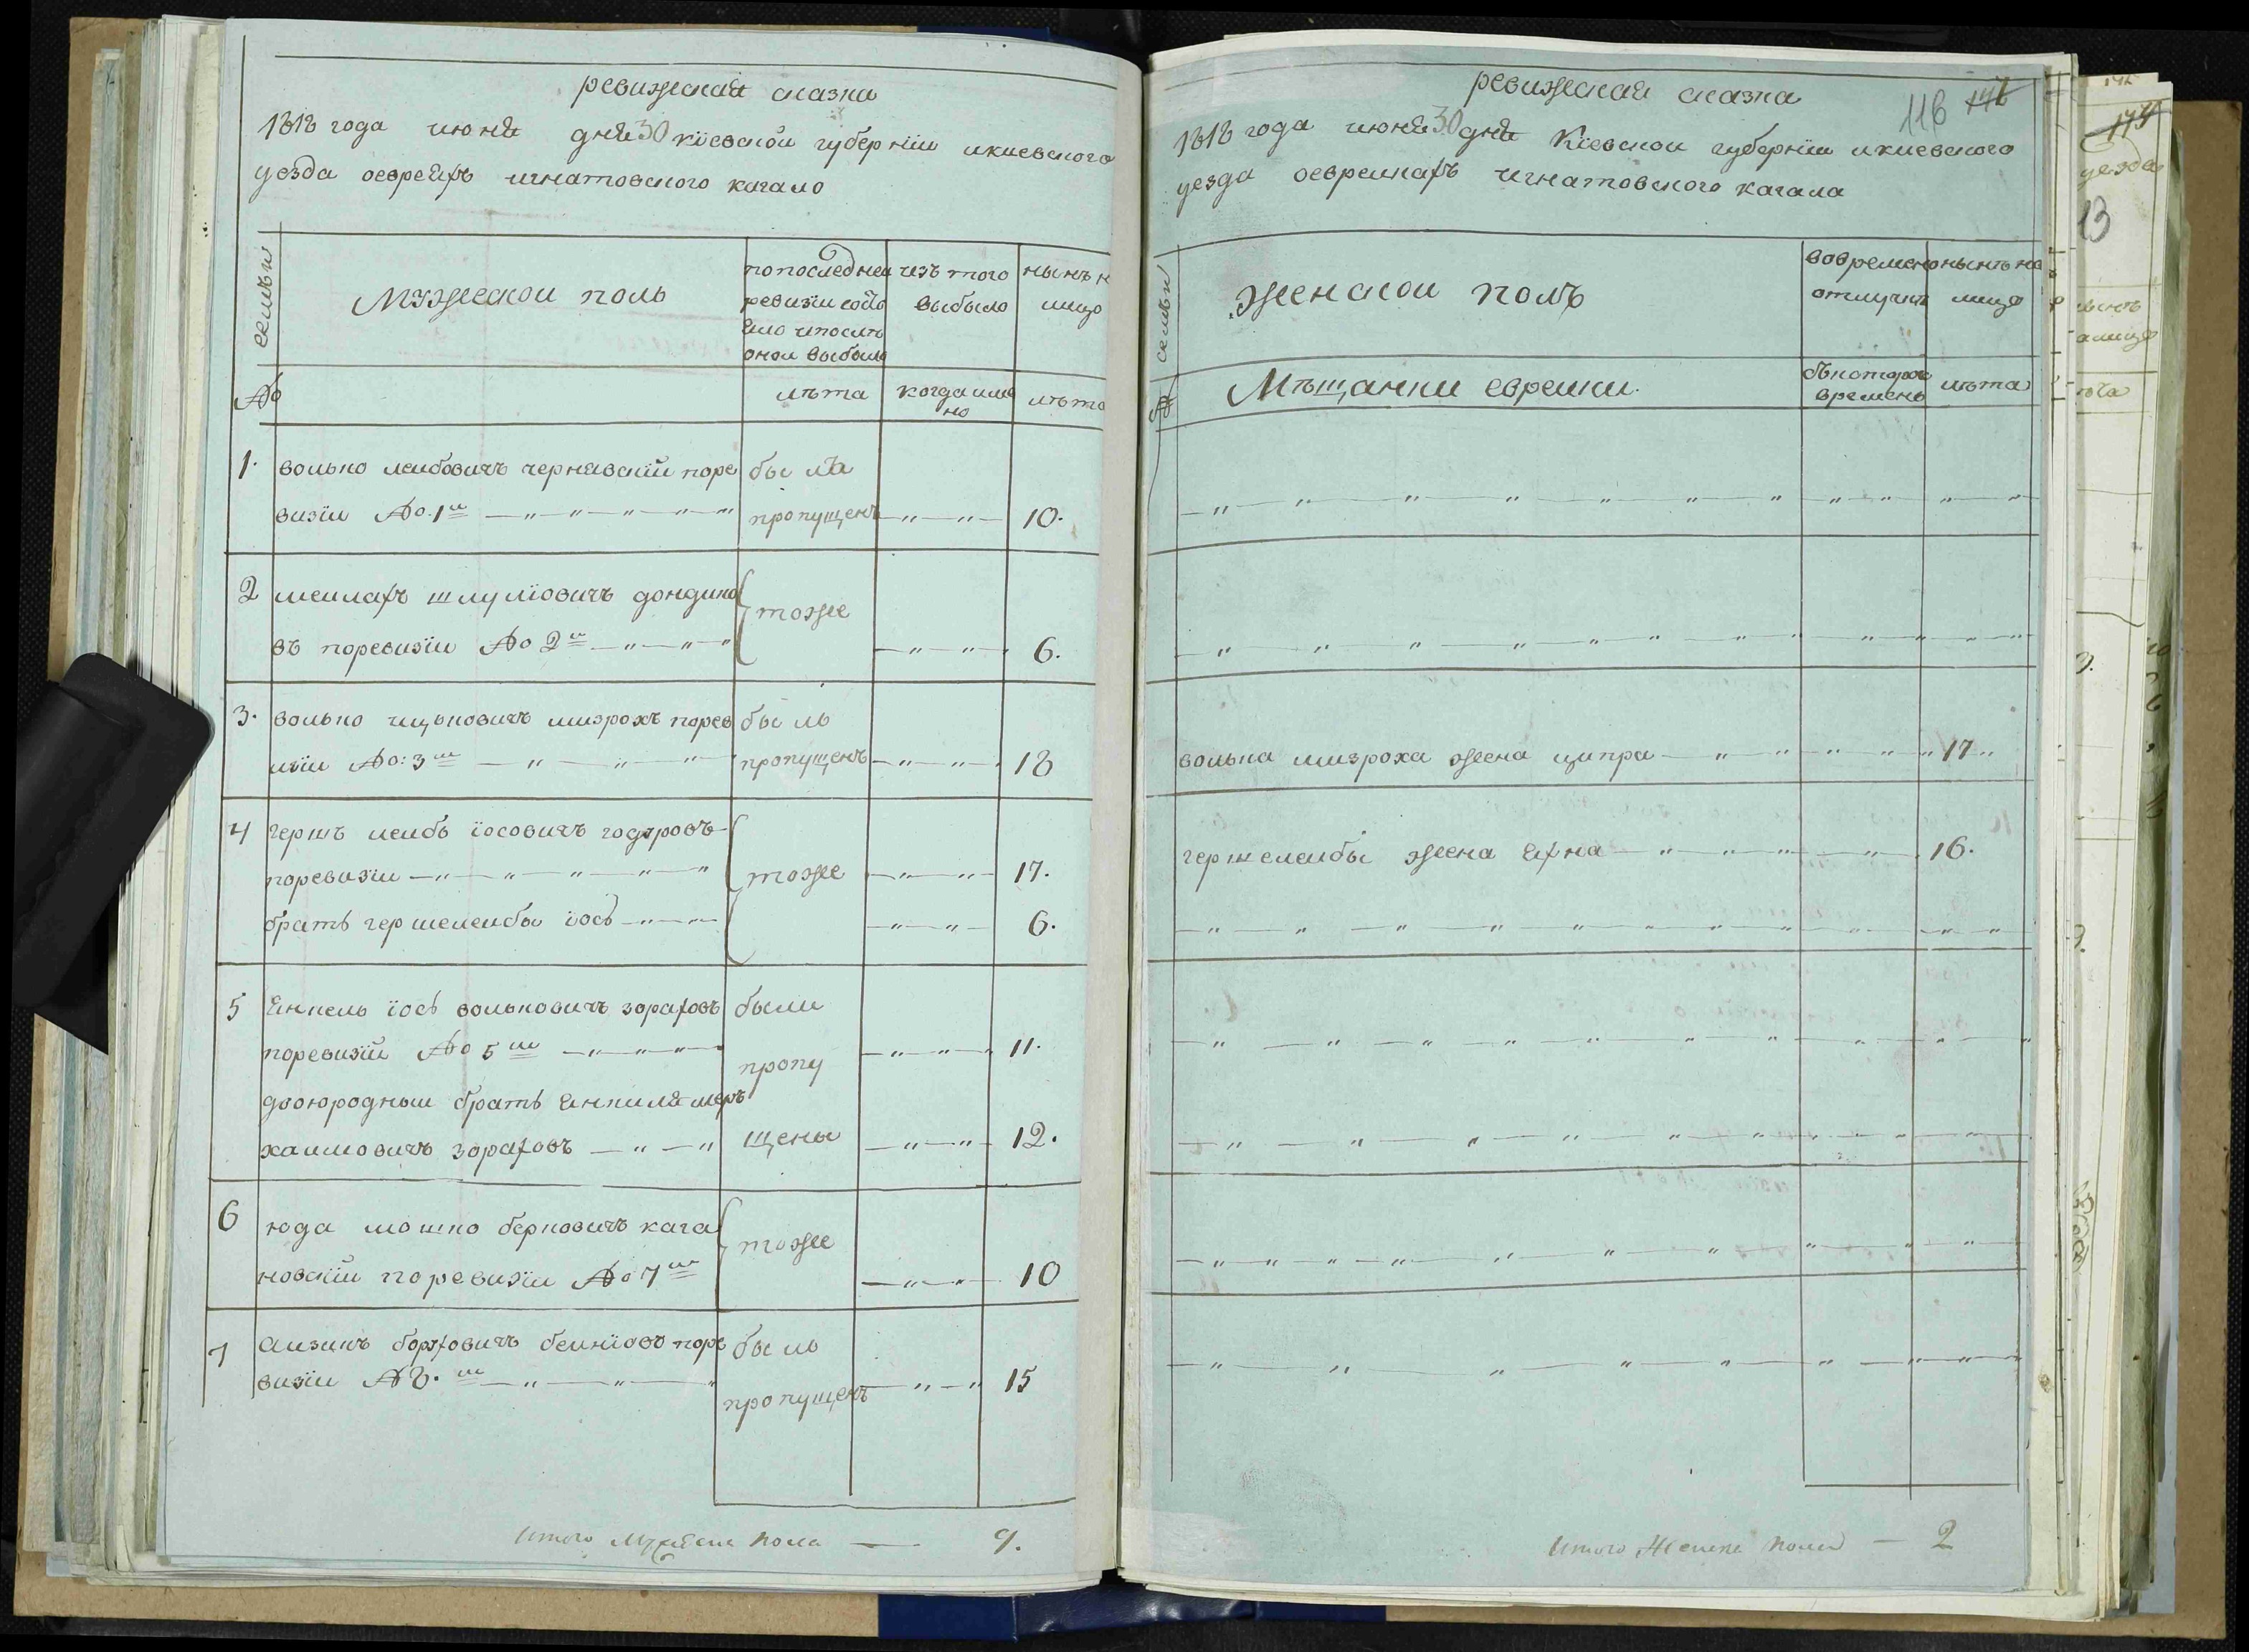 ревижская сказка
1818 года июня дня 30 кіевской губерніи икиевского
уезда оевреяхъ игнатовского кагало
семьи
Мужеской полъ
по последней
ревизїи состо
яло ипослѣ
оной выбыло
изъ того
выбыло
нынѣ н
лицо
№
лѣта
когда име
но
лѣта
1. волько лейбовичъ чернявскїй поре
визїи №. 1й
былъ
пропущенъ
10.
2 меилахъ шлумїовичъ дондико
въ поревизїи № 2й
тоже
6.
3. волько ицьковичъ мизрохъ порев
изїи №: 3й
былъ
пропущенъ
18
4 гершъ лейбъ їосовичъ годоровъ
поревизїи
тоже
17.
братъ гершелейбы їосъ
6.
5 Янкель їосъ вольковичъ зораховъ
поревизїй № 5й
были
пропу
щены
11.
двоюродный братъ Янкиля меръ
хаимовичъ зораховъ
12.
6 юда мошко берковичъ кага
новскїй поревизїи № 7й
тоже
10
7 Аизикъ борховичъ бейнїовъ поре
визїи № 8.й
былъ
пропущенъ
15
Итого Мужеска пола — 9.
ревижская сказка
116
1818 года июня 30 дня Кіевской губерніи икиевского
уезда оеврейкахъ игнатовского кагала
семьи
женской полъ
вовременно
отлучкѣ
нынѣ на
лицо
№
Мѣщанки еврейки.
съкоторого
времены
лѣта
волька мизроха жена ципра 17
гершелейбы жена Яхна 16.
Итого Женска пола — 2
174
уезда
13